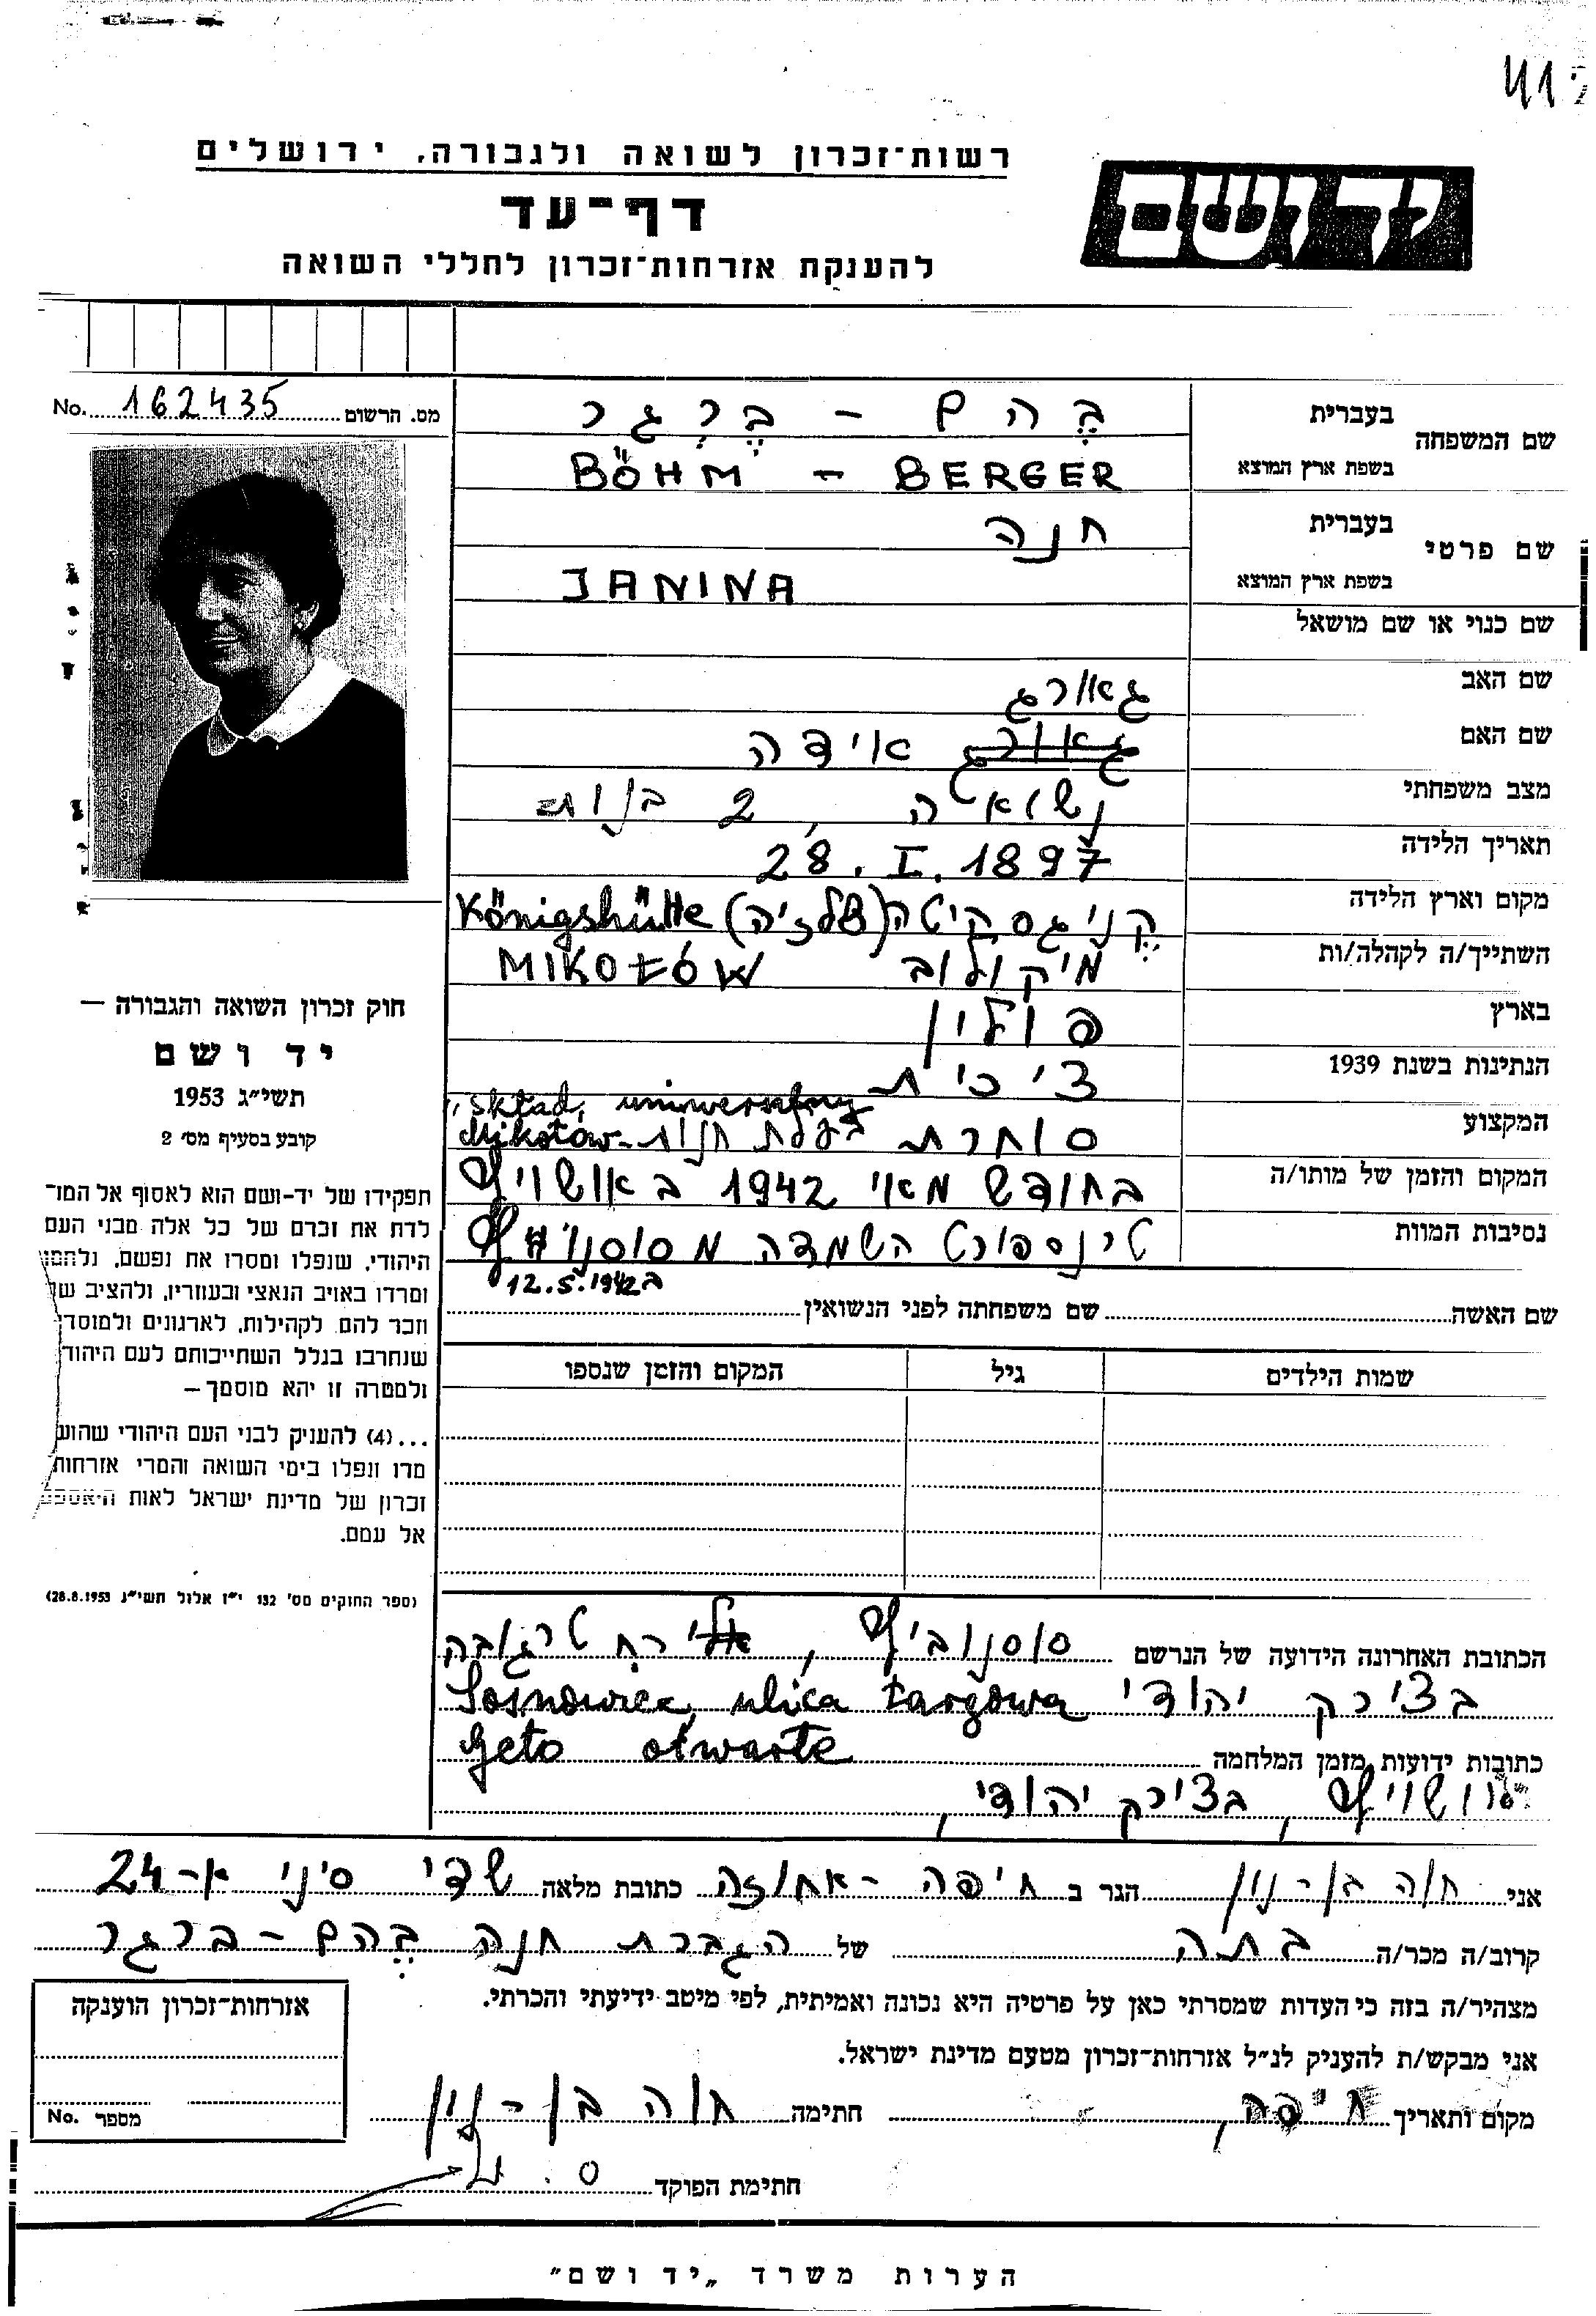 רשות־זכרון לשואה ולגבורה, ירושלים
יד ושם
דף־עד
להענקת אזרחות־זכרון לחללי השואה
מס. הרשום 162435 No.
שם המשפחה
בעברית בֶּהם – בֶּרְגר
בשפת ארץ המוצא BÖHM – BERGER
שם פרטי
בעברית חנה
בשפת ארץ המוצא JANINA
שם כנוי או שם מושאל
שם האב גאורג
שם האם גאורג אידה
מצב משפחתי נשואה, 2 בנות
תאריך הלידה 28. I. 1897
מקום וארץ הלידה קֶניגסהיטה (שלזיה) Königshütte
השתייך/ה לקהלה/ות מיקולוב MIKOŁÓW
בארץ פולין
הנתינות בשנת 1939 צ'כית
"skład uniwersalny
המקצוע סוחרת בעלת חנות - Mikołów
המקום והזמן של מותו/ה בחודש מאי 1942 באושויץ
נסיבות המוות טרנספורט השמדה מסוסנוביץ
ב 12.5.1942
שם האשה שם משפחתה לפני הנשואין
שמות הילדים גיל המקום והזמן שנספו
חוק זכרון השואה והגבורה –
יד ושם
תשי״ג 1953
קובע בסעיף מס׳ 2
תפקידו של יד-ושם הוא לאסוף אל המו־
לדת את זכרם של כל אלה מבני העם
היהודי, שנפלו ומסרו את נפשם, נלחמו
ומרדו באויב הנאצי ובעוזריו, ולהציב שם
וזכר להם, לקהילות, לארגונים ולמוסדות
שנחרבו בגלל השתייכותם לעם היהודי
ולמטרה זו יהא מוסמך –
...(4) להעניק לבני העם היהודי שהוש־
מדו ונפלו בימי השואה והמרי אזרחות־
זכרון של מדינת ישראל לאות היאספם
אל עמם.
(ספר החוקים מס׳ 132 י״ז אלול תשי״ג 28.8.1953)
הכתובת האחרונה הידועה של הנרשם סוסנוביץ, רח' טרגובה
בצירק יהודי Sosnowiec, ulica targowa
Geto otwarte
כתובות ידועות מזמן המלחמה
בצירק יהודי,
אני חוה בן-נון הגר ב חיפה - אחוזה כתובת מלאה שדי סיני א-24
קרוב/ה מכר/ה בתה של הגברת חנה בֶּהם - ברגר
מצהיר/ה בזה כי העדות שמסרתי כאן על פרטיה היא נכונה ואמיתית, לפי מיטב ידיעתי והכרתי.
אני מבקש/ת להעניק לנ״ל אזרחות־זכרון מטעם מדינת ישראל.
מקום ותאריך חיפה, חתימה חוה בן-נון
חתימת הפוקד
אזרחות־זכרון הוענקה
מספר No.
הערות משרד „יד ושם"